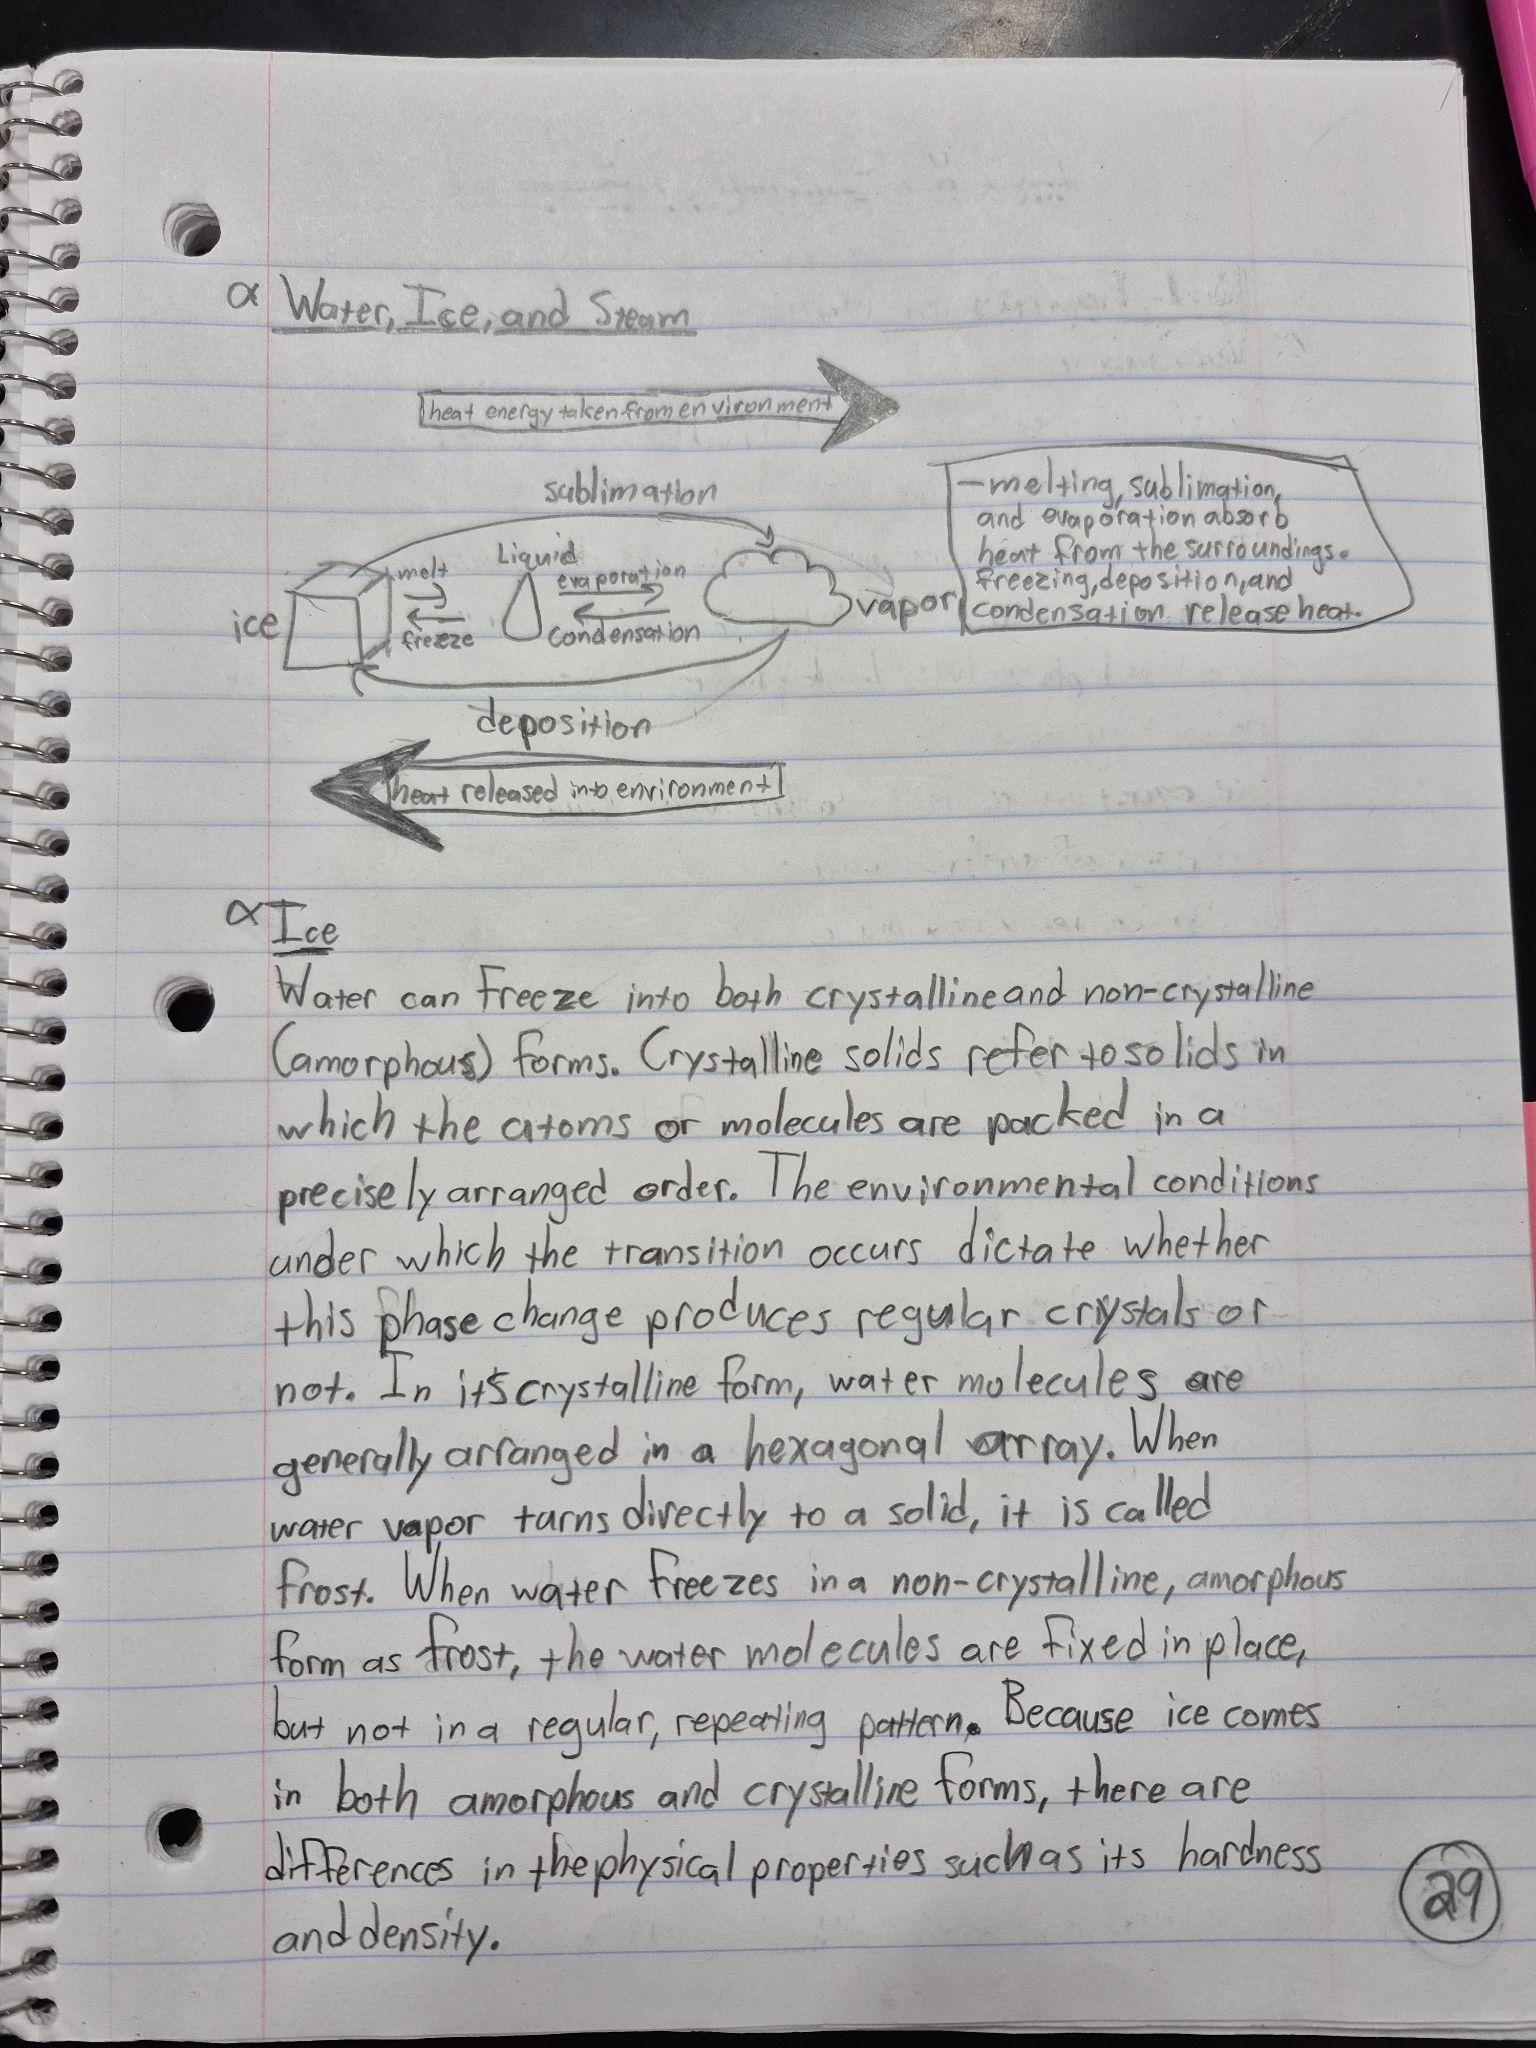 α Water, Ice, and Steam
heat energy taken from environment
sublimation
-melting, sublimation,
and evaporation absorb
heat from the surroundings.
freezing, deposition, and
condensation release heat.
Liquid
melt
evaporation
ice
vapor
freeze
condensation
deposition
heat released into environment
α Ice
Water can freeze into both crystalline and non-crystalline
(amorphous) forms. Crystalline solids refer to solids in
which the atoms or molecules are packed in a
precisely arranged order. The environmental conditions
under which the transition occurs dictate whether
this phase change produces regular crystals or
not. In its crystalline form, water molecules are
generally arranged in a hexagonal array. When
water vapor turns directly to a solid, it is called
frost. When water freezes in a non-crystalline, amorphous
form as frost, the water molecules are fixed in place,
but not in a regular, repeating pattern. Because ice comes
in both amorphous and crystalline forms, there are
differences in the physical properties such as its hardness
and density.
29